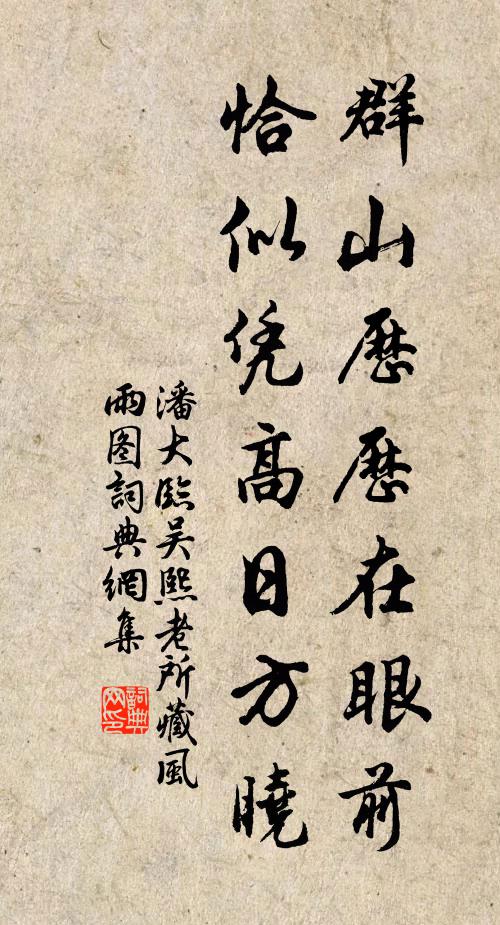 群山歷歷在眼前
恰似凭高日方曉
潘大臨吴熙老所藏風
雨图詞典網集
詞典网印